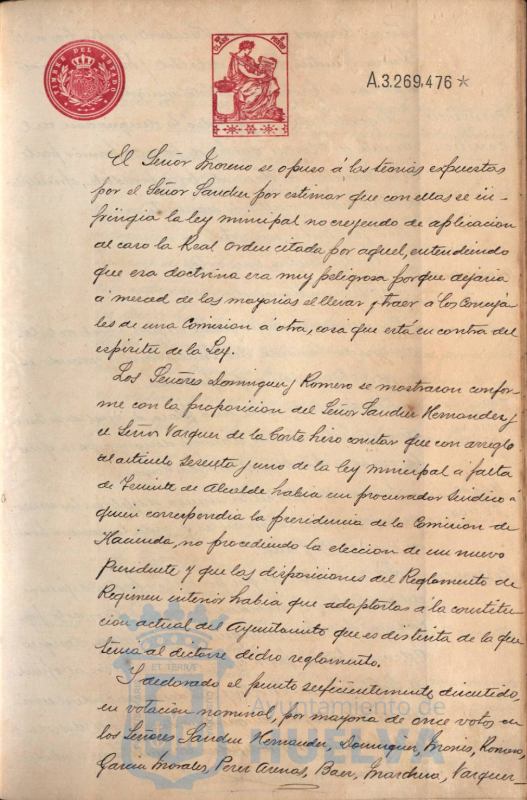 TIMBRE DEL ESTADO
A.3.269.476 *
El Señor Moreno se opuso á las teorias expuestas
por el Señor Sander por estimar que con ellas se in-
fringia la ley minicipal no creyendo de aplicacion
al caso la Real orden citada por aquel, entendiendo
que era doctrina era muy peligrosa porque dejaria
á merced de las mayorias el llevar y traer á los Conceja-
les de una Comision á otra, cosa que está en contra del
espiritu de la Ley.
Los Señores Dominguez y Romero se mostraron confor-
me con la proposicion del Señor Sander Hernandez y
el Señor Vazquez de la Corte hiso constar que con arreglo
al articulo sesenta y uno de la ley minicipal á falta
de Teniente de Alcalde habia un procurador Sindico a
quien correspondia la presidencia de la Comision de
Hacienda, no procediendo la eleccion de un nuevo
Presidente y que las disposiciones del Reglamento de
Regimen interior habia que adaptarlas á la constitu-
cion actual del Ayuntamiento que es distinta de la que
tenia al dictarse dicho reglamento.
Y declarado el punto suficientemente discutido,
en votacion nominal, por mayoria de once votos en
los Señores Sander Hernandez, Dominguez, Monis, Romero,
Garcia Morales, Perez Arenas, Baer, Marchena, Vazquez
Ayuntamiento de
HUELVA